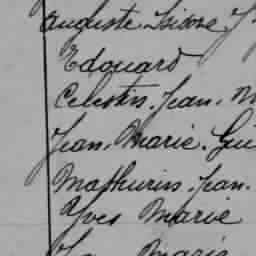 Auguste Isidore J
Edouard
Celestin, Jean, M
Jean, Marie, Gui
Mathurin, Jean.
Yves Marie
Marie